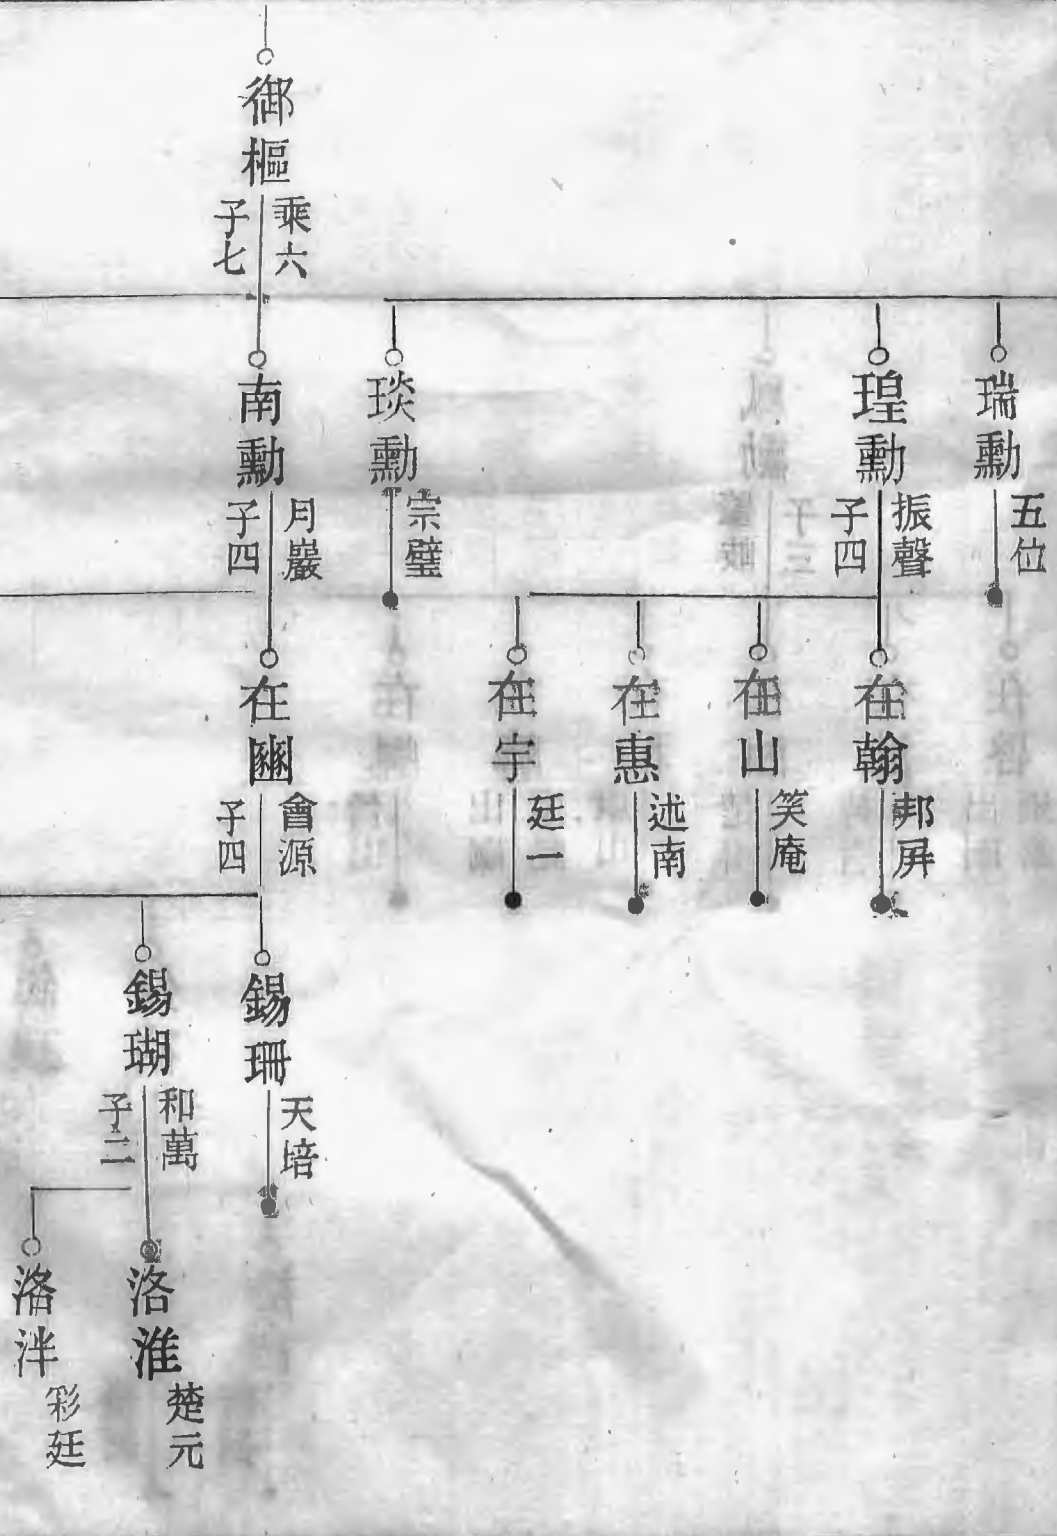 御樞
乘六
子七
瑞勳
五位
瑝勳
振聲
子四
琰勳
宗璧
南勳
月巖
子四
在翰
邦屏
在山
笑庵
在惠
述南
在宇
廷一
在豳
會源
子四
錫珊
天培
錫瑚
和萬
子二
洛淮
楚元
洛泮
彩廷